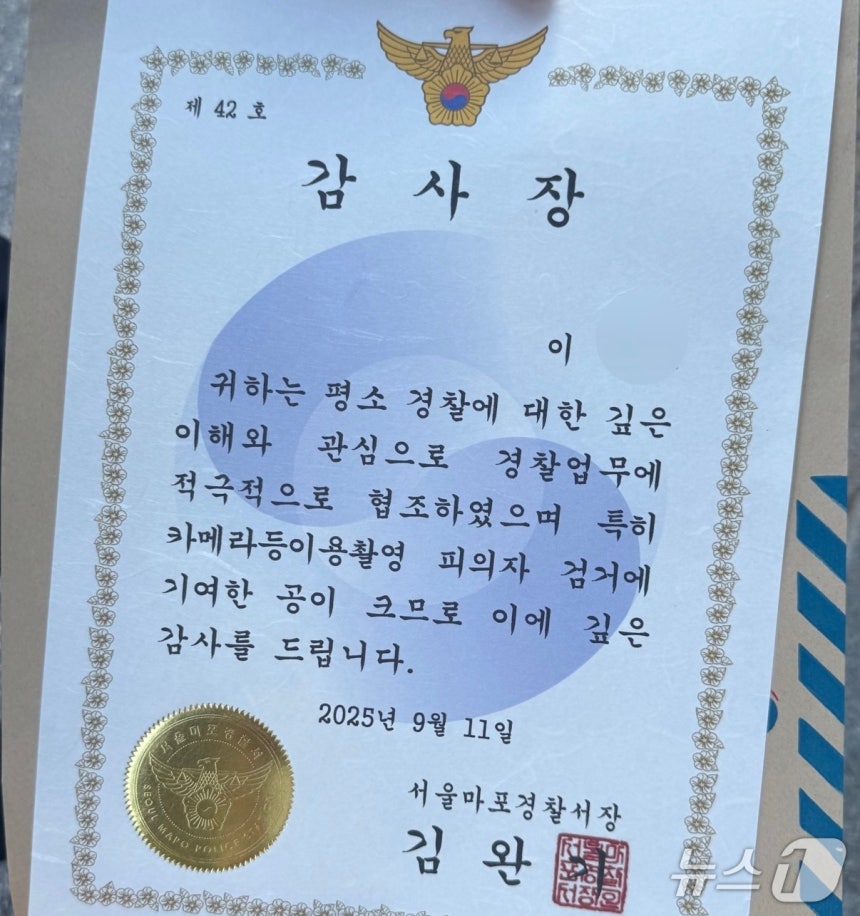 제 42 호
감 사 장
이
귀하는 평소 경찰에 대한 깊은
이해와 관심으로 경찰업무에
적극적으로 협조하였으며 특히
카메라등이용촬영 피의자 검거에
기여한 공이 크므로 이에 깊은
감사를 드립니다.
2025년 9월 11일
서울마포경찰서장
김 완 기
서울마포경찰서
SEOUL MAPO POLICE
뉴스1